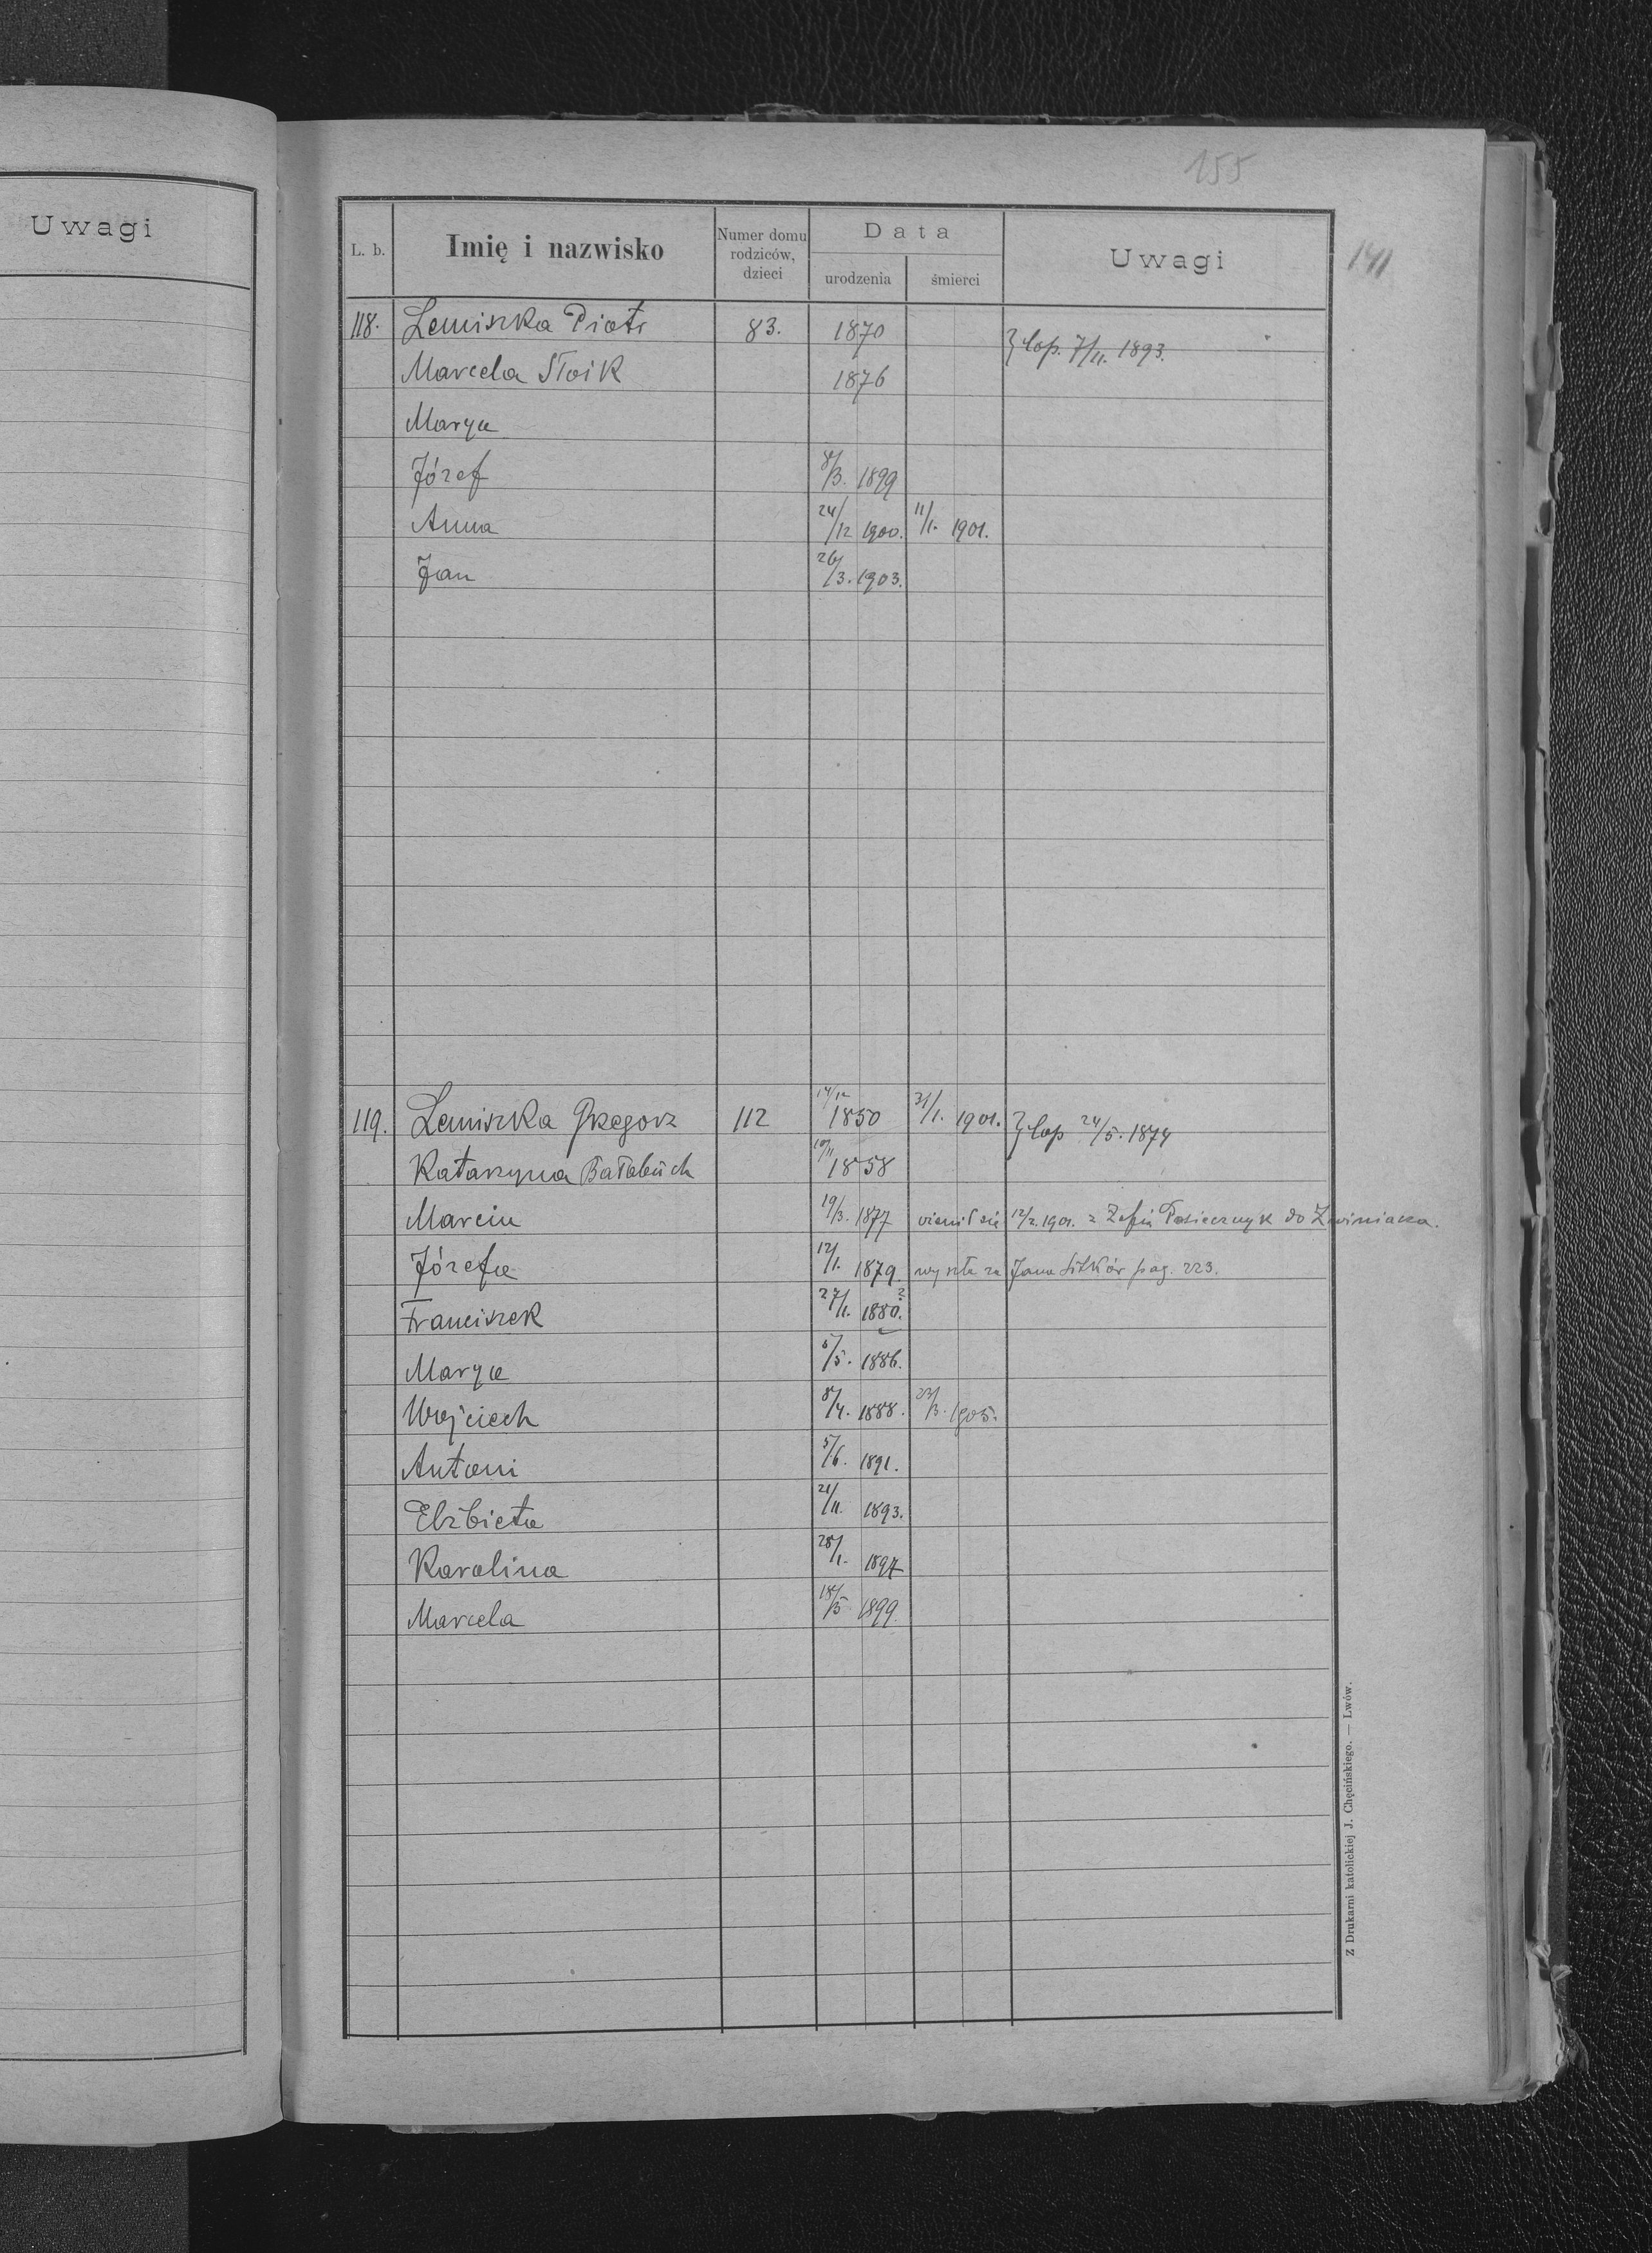 Uwagi
155
141
L. b. Imię i nazwisko Numer domu rodziców, dzieci Data urodzenia śmierci Uwagi
118. Lemiszka Piotr 83. 1870 } cop. 7/11. 1893.
Marcela Słoik 1876
Marya
Józef 8/3. 1899
Anna 24/12 1900. 11/1. 1901.
Jan 26/3. 1903.
119. Lemiszka Grzegorz 112 14/12 1850 31/1. 1901. } cop 24/5. 1874
Katarzyna Bałabuch 19/11 1858
Marcin 19/3. 1877 ożenił się 12/2. 1901. z Zofią Pasiecznyk do Zwiniacza.
Józefa 12/1. 1879 wyszła za Jana Sitków pag. 223.
Franciszek 27/1. 1880. ?
Marya 5/5. 1886.
Wojciech 8/4. 1888. 23/3. 1905.
Antoni 5/6. 1891.
Elżbieta 21/11. 1893.
Karolina 28/1. 1897
Marcela 18/5 1899.
Z Drukarni katolickiej J. Chęcińskiego. — Lwów.